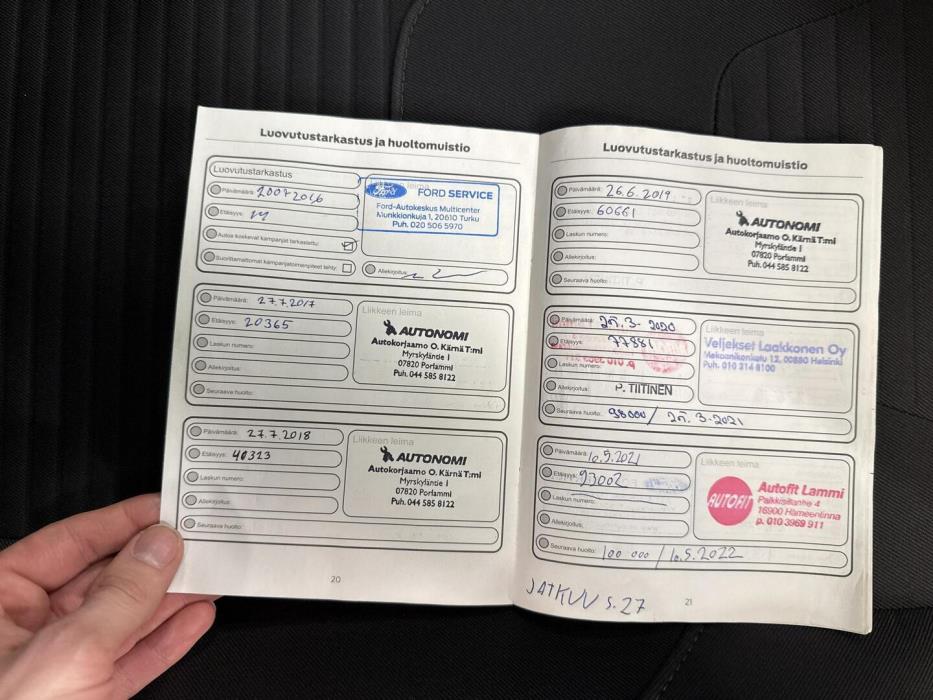 Luovutustarkastus ja huoltomuistio
Luovutustarkastus
Päivämäärä: 20072016
Etäisyys:
Autoa koskevat kampanjat tarkastettu:
Suorittamattomat kampanjatoimenpiteet tehty:
Ford
FORD SERVICE
Ford-Autokeskus Multicenter
Munkkionkuja 1, 20610 Turku
Puh. 020 506 5970
Allekirjoitus:
Päivämäärä: 27.7.2017
Etäisyys: 20365
Laskun numero:
Allekirjoitus:
Seuraava huolto:
AUTONOMI
Autokorjaamo O. Kärnä T:mi
Myrskyläntie 1
07820 Porlammi
Puh. 044 585 8122
Päivämäärä: 27.7.2018
Etäisyys: 40323
Laskun numero:
Allekirjoitus:
Seuraava huolto:
Liikkeen leima
AUTONOMI
Autokorjaamo O. Kärnä T:mi
Myrskyläntie 1
07820 Porlammi
Puh. 044 585 8122
20
Luovutustarkastus ja huoltomuistio
Päivämäärä: 26.6.2019
Etäisyys: 60661
Laskun numero:
Allekirjoitus:
Seuraava huolto:
Liikkeen leima
AUTONOMI
Autokorjaamo O. Kärnä T:mi
Myrskyläntie 1
07820 Porlammi
Puh. 044 585 8122
Päivämäärä: 25.3-2020
Etäisyys: 77881
Laskun numero:
Allekirjoitus: P. TIITINEN
Seuraava huolto: 98000 / 25.3-2021
Liikkeen leima
Veljekset Laakkonen Oy
Mekaanikonkatu 12, 00880 Helsinki
Puh. 010 214 8100
Päivämäärä: 10.5.2021
Etäisyys: 93002
Laskun numero:
Allekirjoitus:
Seuraava huolto: 100 000 / 10.5.2022
Liikkeen leima
AUTOFIT
Autofit Lammi
Palkkisillantie 4
16900 Hämeenlinna
p. 010 3969 911
JATKUU s. 27
21